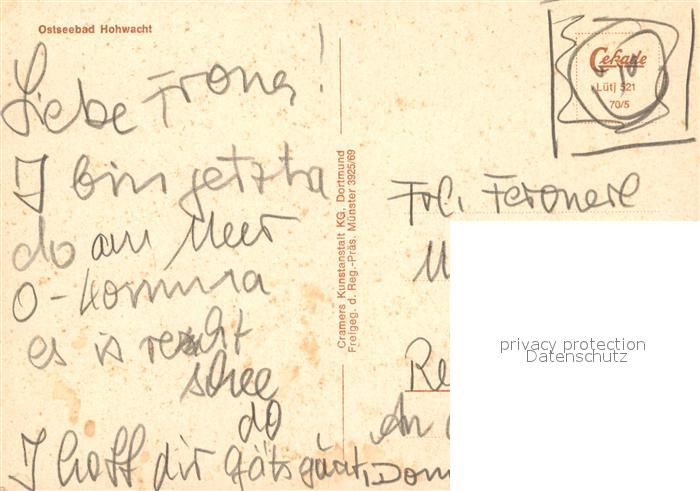 Ostseebad Hohwacht
Liebe Frona!
I bin jetzt a
do am Meer
O-Komma
es is recht
schee
do
I hoff dir gäts guat,
Cramers Kunstanstalt KG, Dortmund
Freigeg. d. Reg.-Präs. Münster 3925/69
Cekade
Lütj 521
70/5
Frl.
M
Re
An
Dom
privacy protection
Datenschutz